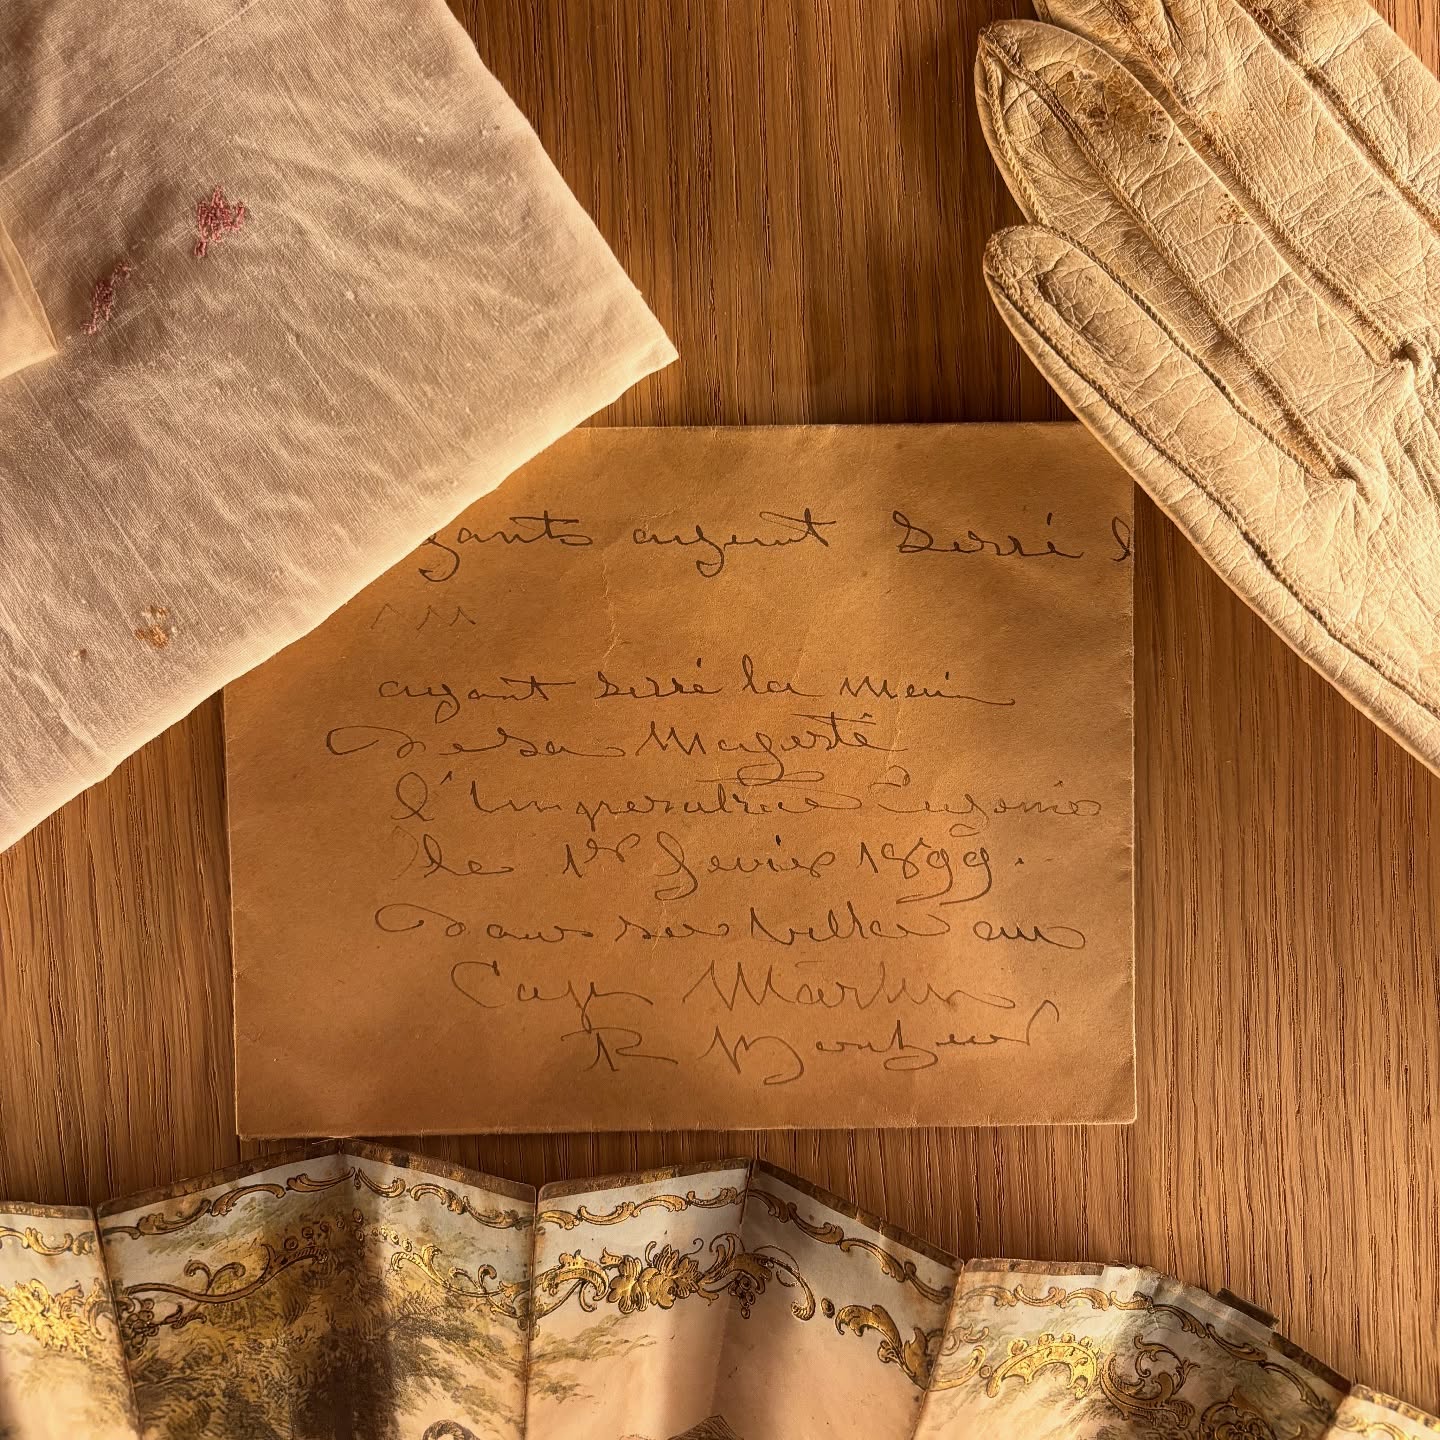 gants ayant Serré l
ayant serré la Main
de sa Majesté
l'Impératrice Eugénie
le 1er fevrier 1899.
dans sa villa au
Cap Martin
R Bonheur